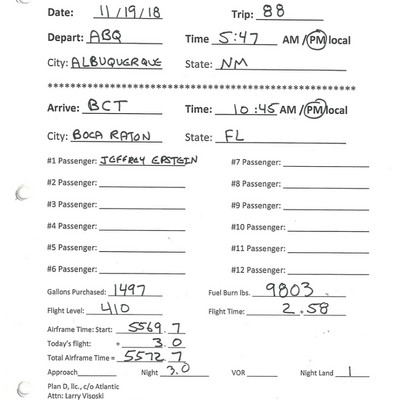 Date: 11/19/18 Trip: 88
Depart: ABQ Time 5:47 AM / PM local
City: ALBUQUERQUE State: NM
****************************************************
Arrive: BCT Time: 10:45 AM / PM local
City: BOCA RATON State: FL
#1 Passenger: JEFFREY EPSTEIN #7 Passenger:
#2 Passenger: #8 Passenger:
#3 Passenger: #9 Passenger:
#4 Passenger: #10 Passenger:
#5 Passenger: #11 Passenger:
#6 Passenger: #12 Passenger:
Gallons Purchased: 1497 Fuel Burn lbs. 9803
Flight Level: 410 Flight Time: 2.58
Airframe Time: Start: 5569.7
Today's flight: + 3.0
Total Airframe Time = 5572.7
Approach Night 3.0 VOR Night Land 1
Plan D, llc., c/o Atlantic
Attn: Larry Visoski